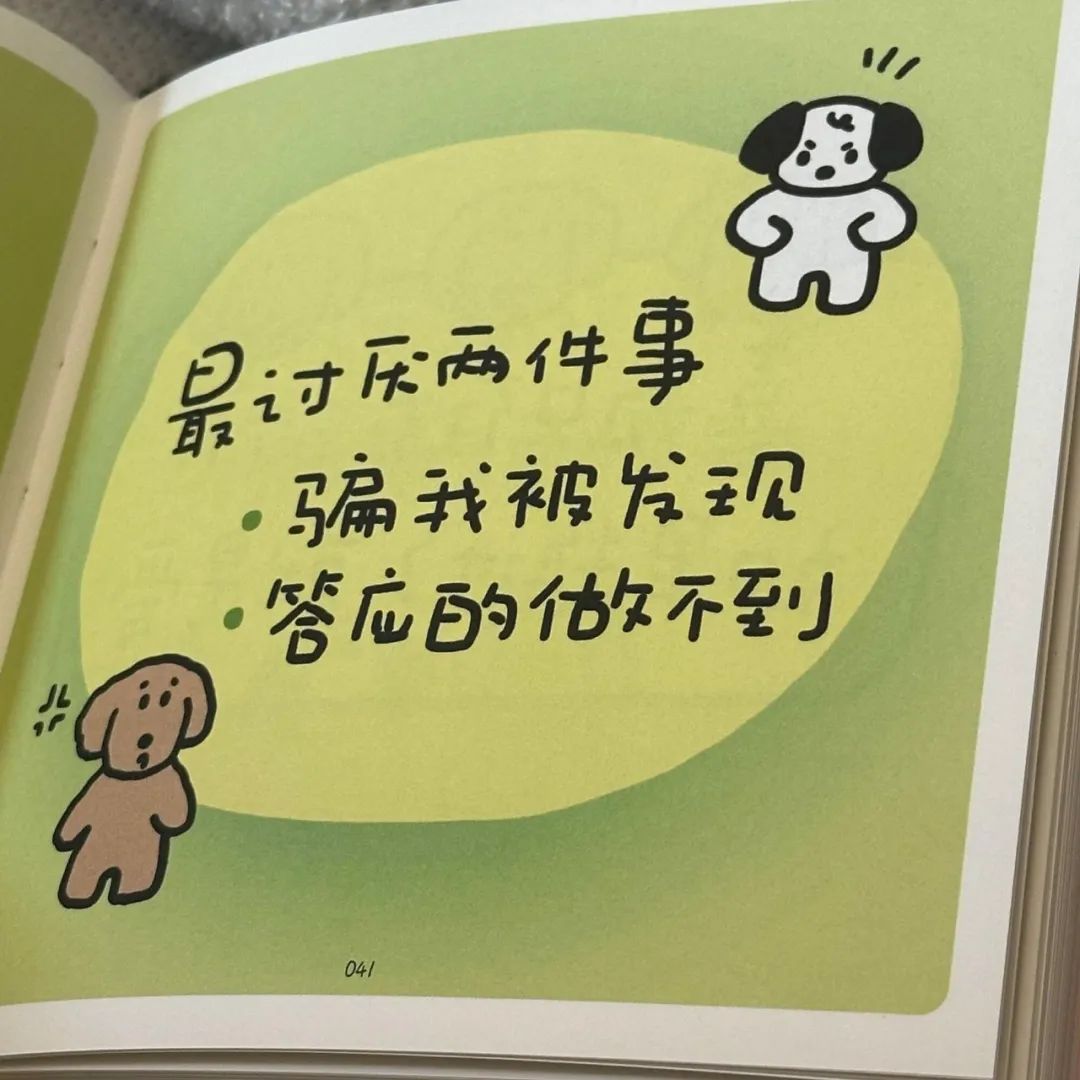 最讨厌两件事
·骗我被发现
·答应的做不到
041